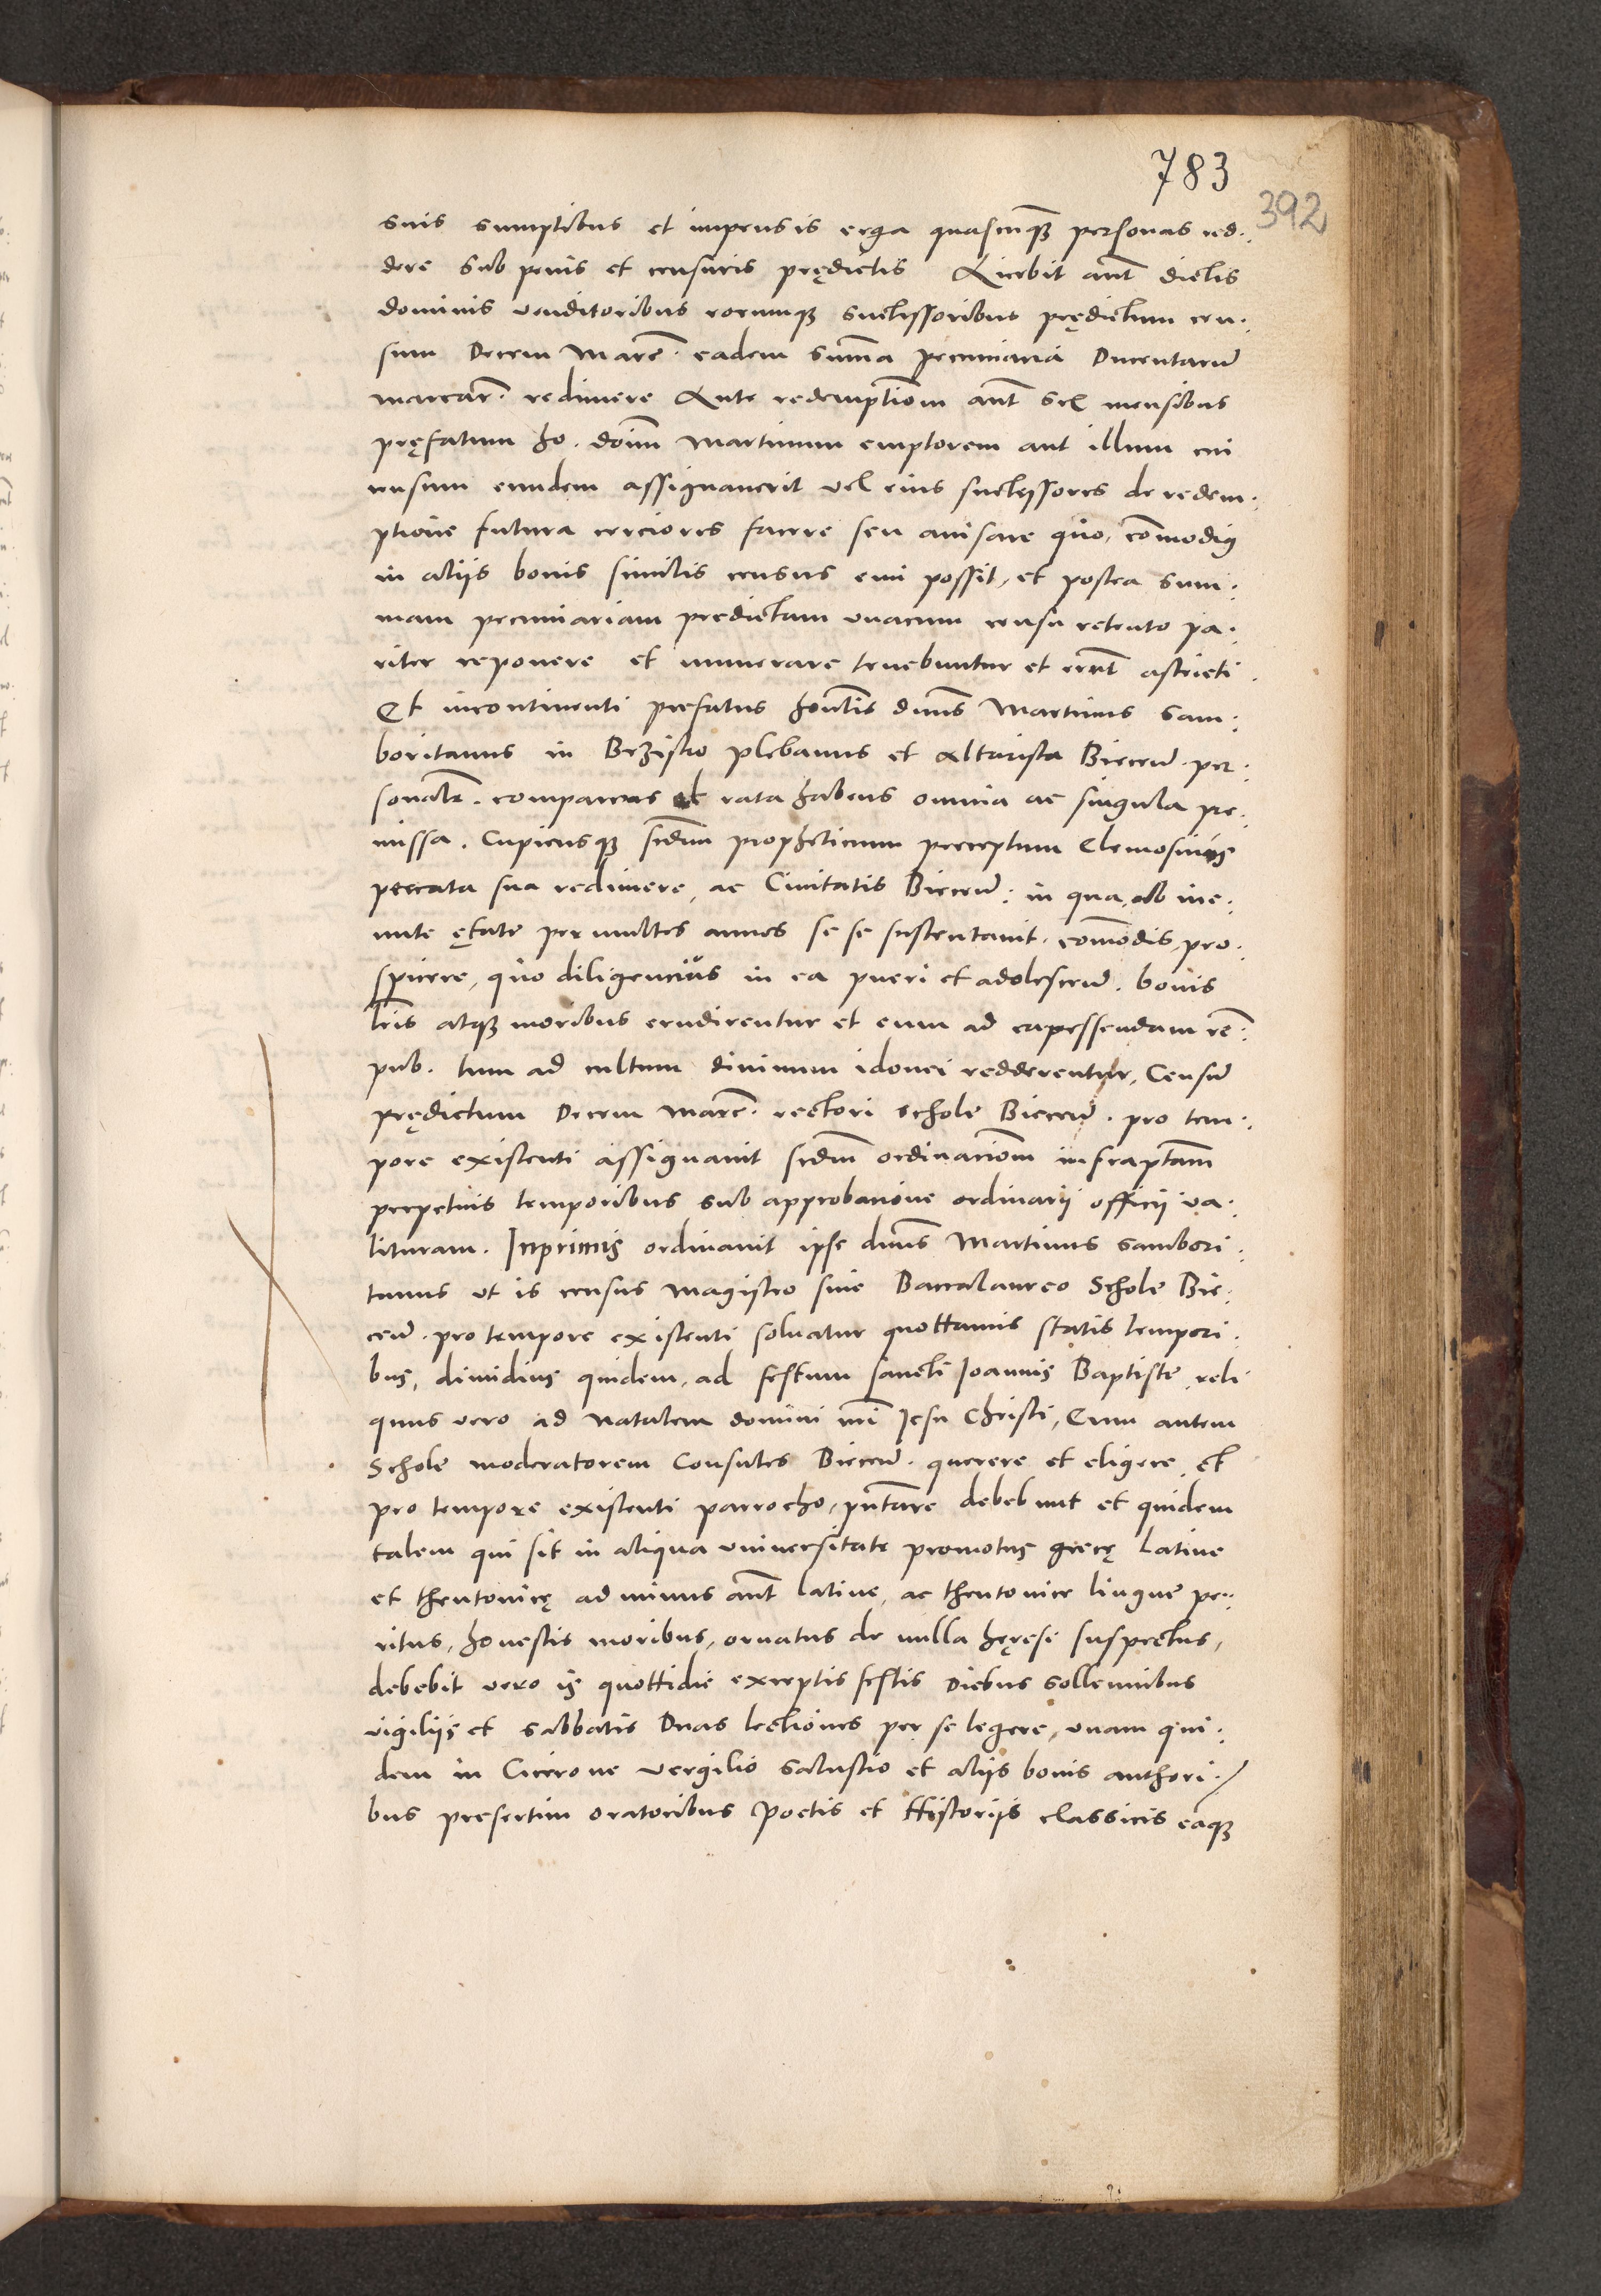 783
392
suis sumptibus et impensis erga quascūq₃ personas red·
dere sub penis et censuris prędictis Licebit aūt dictis
dominis venditoribus eorumq₃ successoribus prędictum cen·
sum Decem Marc̄· eadem sum̄a pecuniaria Ducentarū
marcar̄· redimere Ante redemptiōm aūt sex mensibus
pręfatum ho· doīm Martinum emptorem aut illum cui
censum eundem assignaverit vel eius successores de redem·
ptione futura cerciores facere seu avisare quo, com̄odiꝰ
in aliis bonis similis census emi possit, et postea sum·
mam pecuniariam predictam unacum censu retento pa·
riter reponere et numerare tenebuntur et erūt astricti·
Et incontinenti prefatus hon̄lis dnūs Martinus Sam·
boritanus in Brzisko plebanus et altarista Biecen̄· per·
sonalr̄· comparens et rata habens omnia ac singula pre·
missa· Cupiensq₃ scdm̄ propheticum preceptum Elemosinis
peccata sua redimere, ac Civitatis Biecen̄· in qua, ab ine·
unte ętate per multos annos se se sustentavit· com̄odis, pro·
spicere, quo diligencius in ea pueri et adolescen̄· bonis
lr̄is atq₃ moribus erudirentur et cum ad capessendam rē·
pub· tum ad cultum divinum idonei redderentur, Censū
prędictum Decem Marc̄· rectori Schole Biecen̄· pro tem·
pore existenti assignavit scdm̄ ordinaciōm infrascriptam̄
perpetuis temporibus sub approbacione ordinarii officii va·
lituram· Inprimis ordinavit ipse dnūs Martinus Sambori·
tanus ut is census Magistro sive Baccalaureo Schole Bie·
cen̄· pro tempore existenti solvatur quottannis statis tempori·
bus, dimidius quidem, ad festum sancti Joannis Baptiste, reli
quus vero ad Natalem domini nr̄i Jesu Christi, Eum autem
Schole moderatorem Consules Biecen̄· querere et eligere, et
pro tempore existenti parrocho, pn̄tare debebunt et quidem
talem qui sit in aliqua universitate promotus grecę latine
et theutonicę ad minus aūt latine, ac theutonice lingue pe·
ritus, honestis moribus, ornatus de nulla hęresi suspectus,
debebit vero is quottidie exceptis festis Diebus sollennibus
vigiliis et sabbatis Duas lectiones per se legere, unam qui·
dem in Cicerone Vergilio Salustio et aliis bonis authori·
bus presertim oratoribus Poetis et Historiis classicis eaq₃